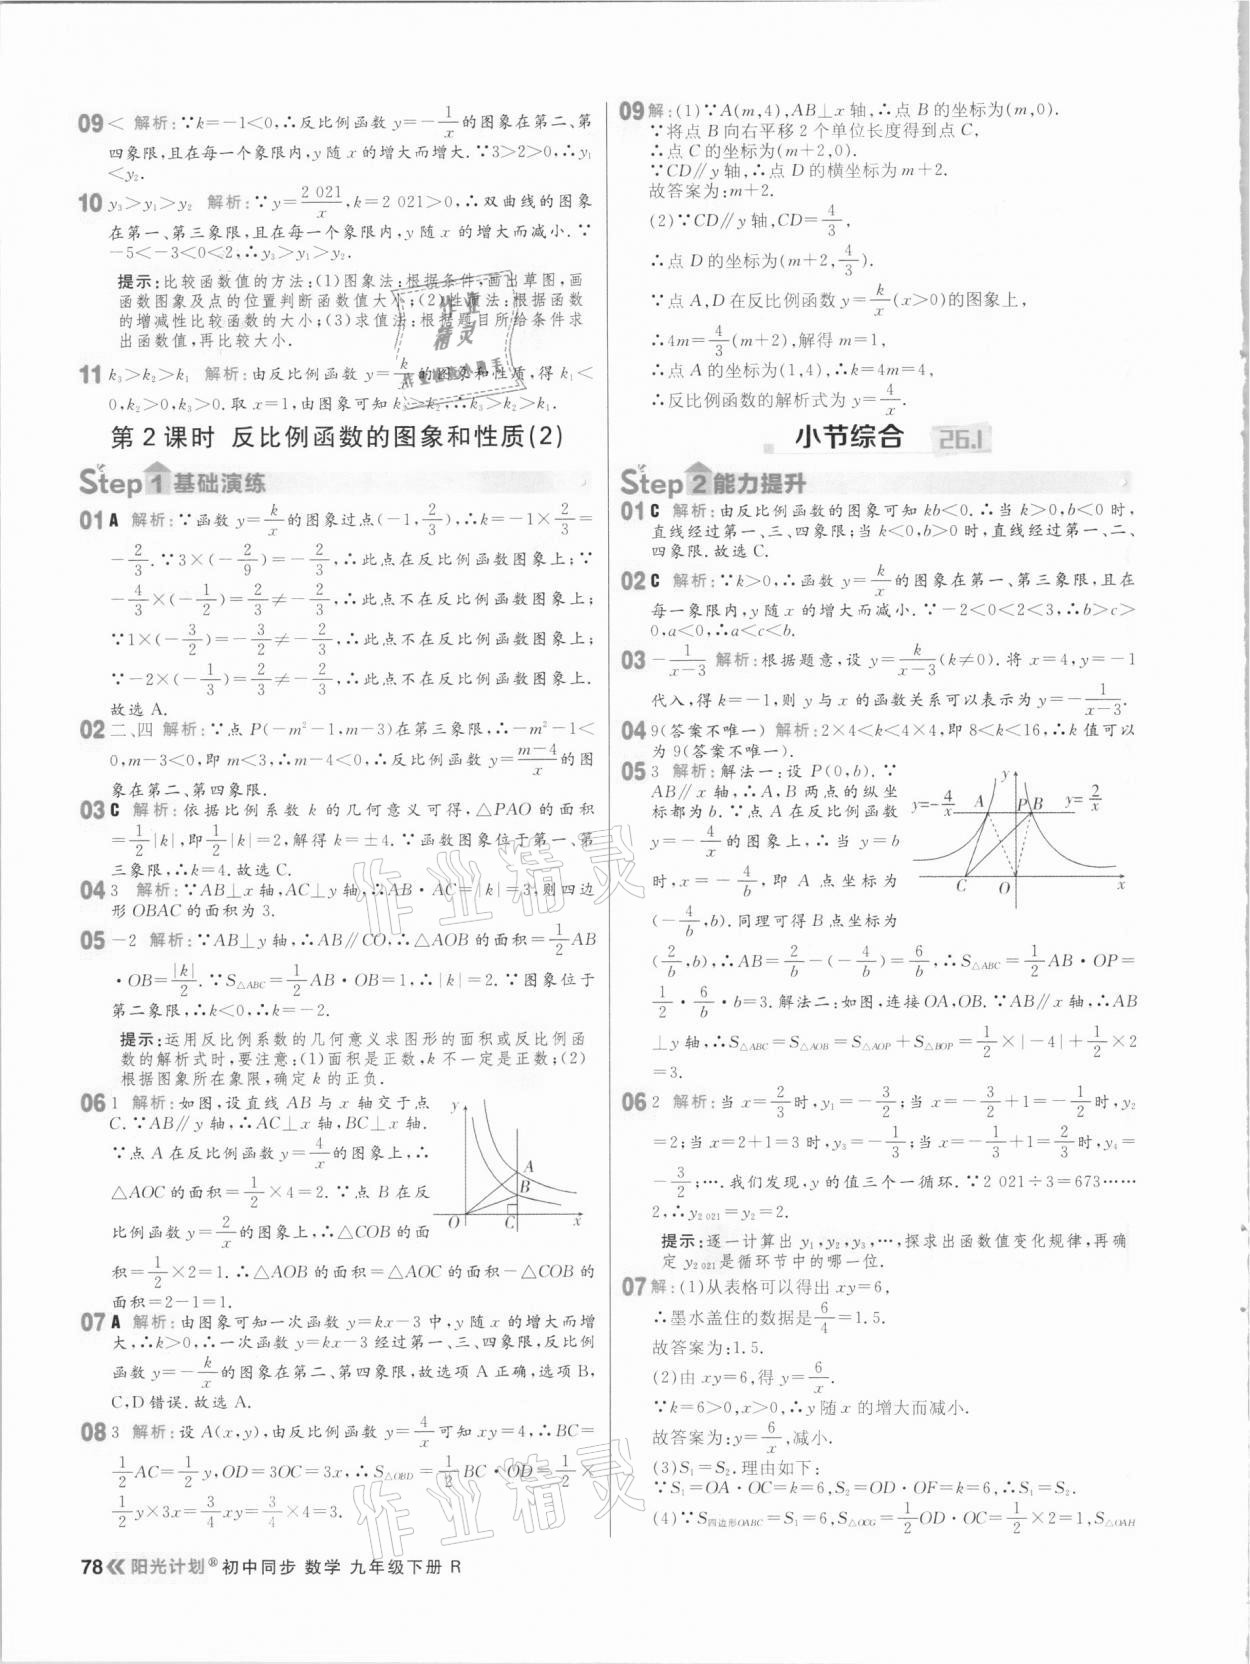 09 < 解析:∵k=-1<0,∴反比例函数 y=-1/x 的图象在第二、第
四象限,且在每一个象限内,y随 x 的增大而增大.∵3>2>0,∴y₁
<y₂.
10 y₃>y₁>y₂ 解析:∵y=2 021/x,k=2 021>0,∴双曲线的图象
在第一、第三象限,且在每一个象限内,y 随 x 的增大而减小.∵
-5<-3<0<2,∴y₃>y₁>y₂.
提示:比较函数值的方法:(1)图象法:根据条件,画出草图,画
函数图象及点的位置判断函数值大小;(2)性质法:根据函数
的增减性比较函数的大小;(3)求值法:根据题目所给条件求
出函数值,再比较大小.
11 k₃>k₂>k₁ 解析:由反比例函数 y=k/x 的图象和性质,得 k₁<
0,k₂>0,k₃>0.取 x=1,由图象可知 k₃>k₂,∴k₃>k₂>k₁.
第 2 课时 反比例函数的图象和性质(2)
Step 1 基础演练
01 A 解析:∵函数 y=k/x 的图象过点(-1,2/3),∴k=-1×2/3=
-2/3.∵3×(-2/9)=-2/3,∴此点在反比例函数图象上;∵
-4/3×(-1/2)=2/3≠-2/3,∴此点不在反比例函数图象上;
∵1×(-3/2)=-3/2≠-2/3,∴此点不在反比例函数图象上;
∵-2×(-1/3)=2/3≠-2/3,∴此点不在反比例函数图象上.
故选 A.
02 二、四 解析:∵点 P(-m²-1,m-3)在第三象限,∴-m²-1<
0,m-3<0,即 m<3,∴m-4<0,∴反比例函数 y=m-4/x的图
象在第二、第四象限.
03 C 解析:依据比例系数 k 的几何意义可得,△PAO 的面积
=1/2|k|,即1/2|k|=2,解得 k=±4.∵函数图象位于第一、第
三象限,∴k=4.故选 C.
04 3 解析:∵AB⊥x 轴,AC⊥y 轴,∴AB·AC=|k|=3,则四边
形 OBAC 的面积为 3.
05 -2 解析:∵AB⊥y 轴,∴AB∥CO,∴△AOB 的面积=1/2AB
·OB=|k|/2.∵S△ABC=1/2AB·OB=1,∴|k|=2.∵图象位于
第二象限,∴k<0,∴k=-2.
提示:运用反比例系数的几何意义求图形的面积或反比例函
数的解析式时,要注意:(1)面积是正数,k 不一定是正数;(2)
根据图象所在象限,确定 k 的正负.
06 1 解析:如图,设直线 AB 与 x 轴交于点
C.∵AB∥y 轴,∴AC⊥x 轴,BC⊥x 轴.
∵点 A 在反比例函数 y=4/x 的图象上,∴
△AOC 的面积=1/2×4=2.∵点 B 在反
比例函数 y=2/x 的图象上,∴△COB 的面
积=1/2×2=1.∴△AOB 的面积=△AOC 的面积-△COB 的
面积=2-1=1.
y
A
B
O
C
x
07 A 解析:由图象可知一次函数 y=kx-3 中,y 随 x 的增大而增
大,∴k>0,∴一次函数 y=kx-3 经过第一、三、四象限,反比例
函数 y=-k/x 的图象在第二、第四象限,故选项 A 正确,选项 B,
C,D 错误.故选 A.
08 3 解析:设 A(x,y),由反比例函数 y=4/x 可知 xy=4,∴BC=
1/2AC=1/2y,OD=3OC=3x,∴S△OBD=1/2BC·OD=1/2×
1/2y×3x=3/4xy=3/4×4=3.
78 阳光计划® 初中同步 数学 九年级下册 R
09 解:(1)∵A(m,4),AB⊥x 轴,∴点 B 的坐标为(m,0).
∵将点 B 向右平移 2 个单位长度得到点 C,
∴点 C 的坐标为(m+2,0).
∵CD∥y 轴,∴点 D 的横坐标为 m+2.
故答案为:m+2.
(2)∵CD∥y 轴,CD=4/3,
∴点 D 的坐标为(m+2,4/3).
∵点 A,D 在反比例函数 y=k/x(x>0)的图象上,
∴4m=4/3(m+2),解得 m=1,
∴点 A 的坐标为(1,4),∴k=4m=4,
∴反比例函数的解析式为 y=4/x.
小节综合 26.1
Step 2 能力提升
01 C 解析:由反比例函数的图象可知 kb<0.∴当 k>0,b<0 时,
直线经过第一、三、四象限;当 k<0,b>0 时,直线经过第一、二、
四象限.故选 C.
02 C 解析:∵k>0,∴函数 y=k/x 的图象在第一、第三象限,且在
每一象限内,y 随 x 的增大而减小.∵-2<0<2<3,∴b>c>
0,a<0,∴a<c<b.
03 -1/x-3 解析:根据题意,设 y=k/x-3(k≠0).将 x=4,y=-1
代入,得 k=-1,则 y 与 x 的函数关系可以表示为 y=-1/x-3.
04 9(答案不唯一) 解析:2×4<k<4×4,即 8<k<16,∴k 值可以
为 9(答案不唯一).
05 3 解析:解法一:设 P(0,b).∵
AB∥x 轴,∴A,B 两点的纵坐
标都为 b.∵点 A 在反比例函数
y=-4/x 的图象上,∴当 y=b
时,x=-4/b,即 A 点坐标为
(-4/b,b).同理可得 B 点坐标为
(2/b,b),∴AB=2/b-(-4/b)=6/b,∴S△ABC=1/2AB·OP=
1/2·6/b·b=3.解法二:如图,连接 OA,OB.∵AB∥x 轴,∴AB
⊥y 轴,∴S△ABC=S△AOB=S△AOP+S△BOP=1/2×|-4|+1/2×2
=3.
y
y=-4/x
A
P
B
y=2/x
C
O
x
06 2 解析:当 x=2/3时,y₁=-3/2;当 x=-3/2+1=-1/2时,y₂
=2;当 x=2+1=3 时,y₃=-1/3;当 x=-1/3+1=2/3时,y₄=
-3/2;….我们发现,y 的值三个一循环.∵2 021÷3=673……
2,∴y₂ ₀₂₁=y₂=2.
提示:逐一计算出 y₁,y₂,y₃,…,探求出函数值变化规律,再确
定 y₂ ₀₂₁是循环节中的哪一位.
07 解:(1)从表格可以得出 xy=6,
∴墨水盖住的数据是6/4=1.5.
故答案为:1.5.
(2)由 xy=6,得 y=6/x.
∵k=6>0,x>0,∴y 随 x 的增大而减小.
故答案为:y=6/x,减小.
(3)S₁=S₂.理由如下:
∵S₁=OA·OC=k=6,S₂=OD·OF=k=6,∴S₁=S₂.
(4)∵S四边形OABC=S₁=6,S△OCG=1/2OD·OC=1/2×2=1,S△OAH
作业精灵
作业精灵
作业精灵